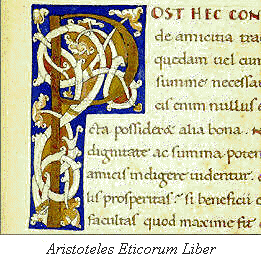 POST HEC CON
de amicitia trac
quedam uel cum
summe necessar
cis enim nullus e
eta possidere alia bona.
dignitate ac summa poten
amicis indigere uidentur.
us prosperitas. si beneficii e
facultas quod maxime fit e
Aristoteles Eticorum Liber